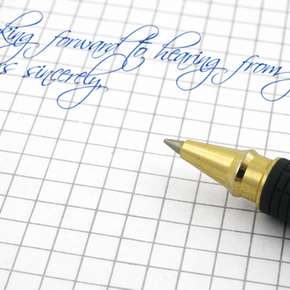 king forward to hearing from
s sincerely,